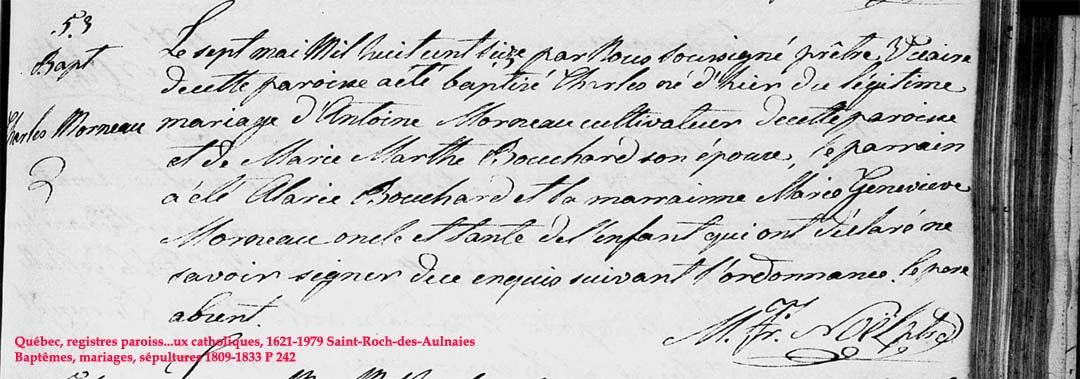 53
Bapt
Charles Morneau
2
Le sept mai Mil huit cent seize par Nous soussigné prêtre Vicaire
de cette paroisse a été baptizé Charles né d'hier du légitime
mariage d'Antoine Morneau cultivateur de cette paroisse
et de Marie Marthe Bouchard son épouse, le parrain
à été Bouchard et la marrainne Marie Genevieve
Morneau oncle et tante de l'enfant qui ont déclaré ne
savoir signer de ce enquis suivant l'ordonnance. le pere
absent.
M. Fr. Noël ptre
Québec, registres paroiss...ux catholiques, 1621-1979 Saint-Roch-des-Aulnaies
Baptêmes, mariages, sépultures 1809-1833 P 242